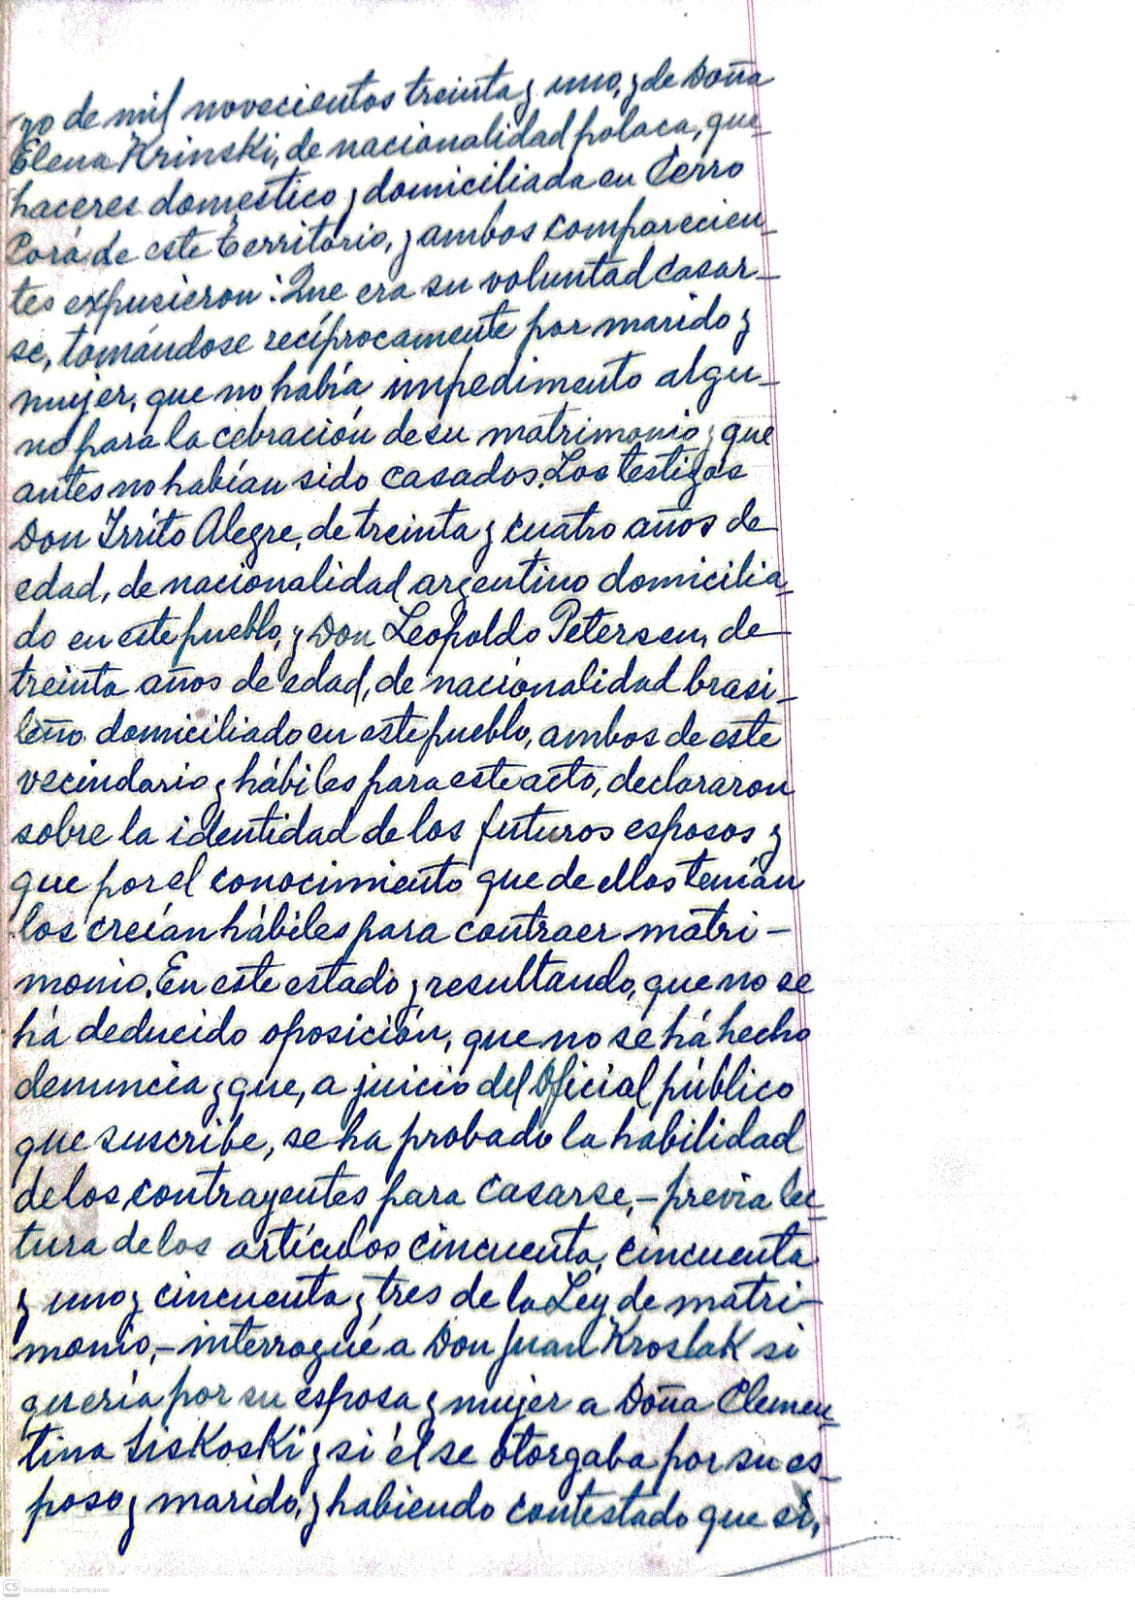 ro de mil novecientos treinta y uno, y de Doña
Elena Krinski, de nacionalidad polaca, que_
haceres domestico y domiciliada en Cerro
Corá de este territorio, y ambos comparecien_
tes expusieron: Que era su voluntad casar_
se, tomándose recíprocamente por marido y
mujer, que no había impedimento algu_
no para la cebración de su matrimonio y que
antes no habían sido casados. Los testigos
Don Irrito Alegre, de treinta y cuatro años de
edad, de nacionalidad argentino domicilia_
do en este pueblo, y Don Leopoldo Petersen, de
treinta años de edad, de nacionalidad brasi_
leño domiciliado en este pueblo, ambos de este
vecindario y hábiles para este acto, declararon
sobre la identidad de los futuros esposos y
que por el conocimiento que de ellos tenían
los creían hábiles para contraer matri-
monio. En este estado y resultando, que no se
há deducido oposición, que no se há hecho
denuncia y que, a juicio del Oficial público
que suscribe, se ha probado la habilidad
de los contrayentes para casarse,- previa lec_
tura de los artículos cincuenta, cincuenta
y uno y cincuenta y tres de la Ley de matri-
monio,- interrogué a Don Juan Kroslak si
quería por su esposa y mujer a Doña Clemen_
tina Liskoski y si él se otorgaba por su es_
poso y marido, y habiendo contestado que sí,
CS Escaneado con CamScanner